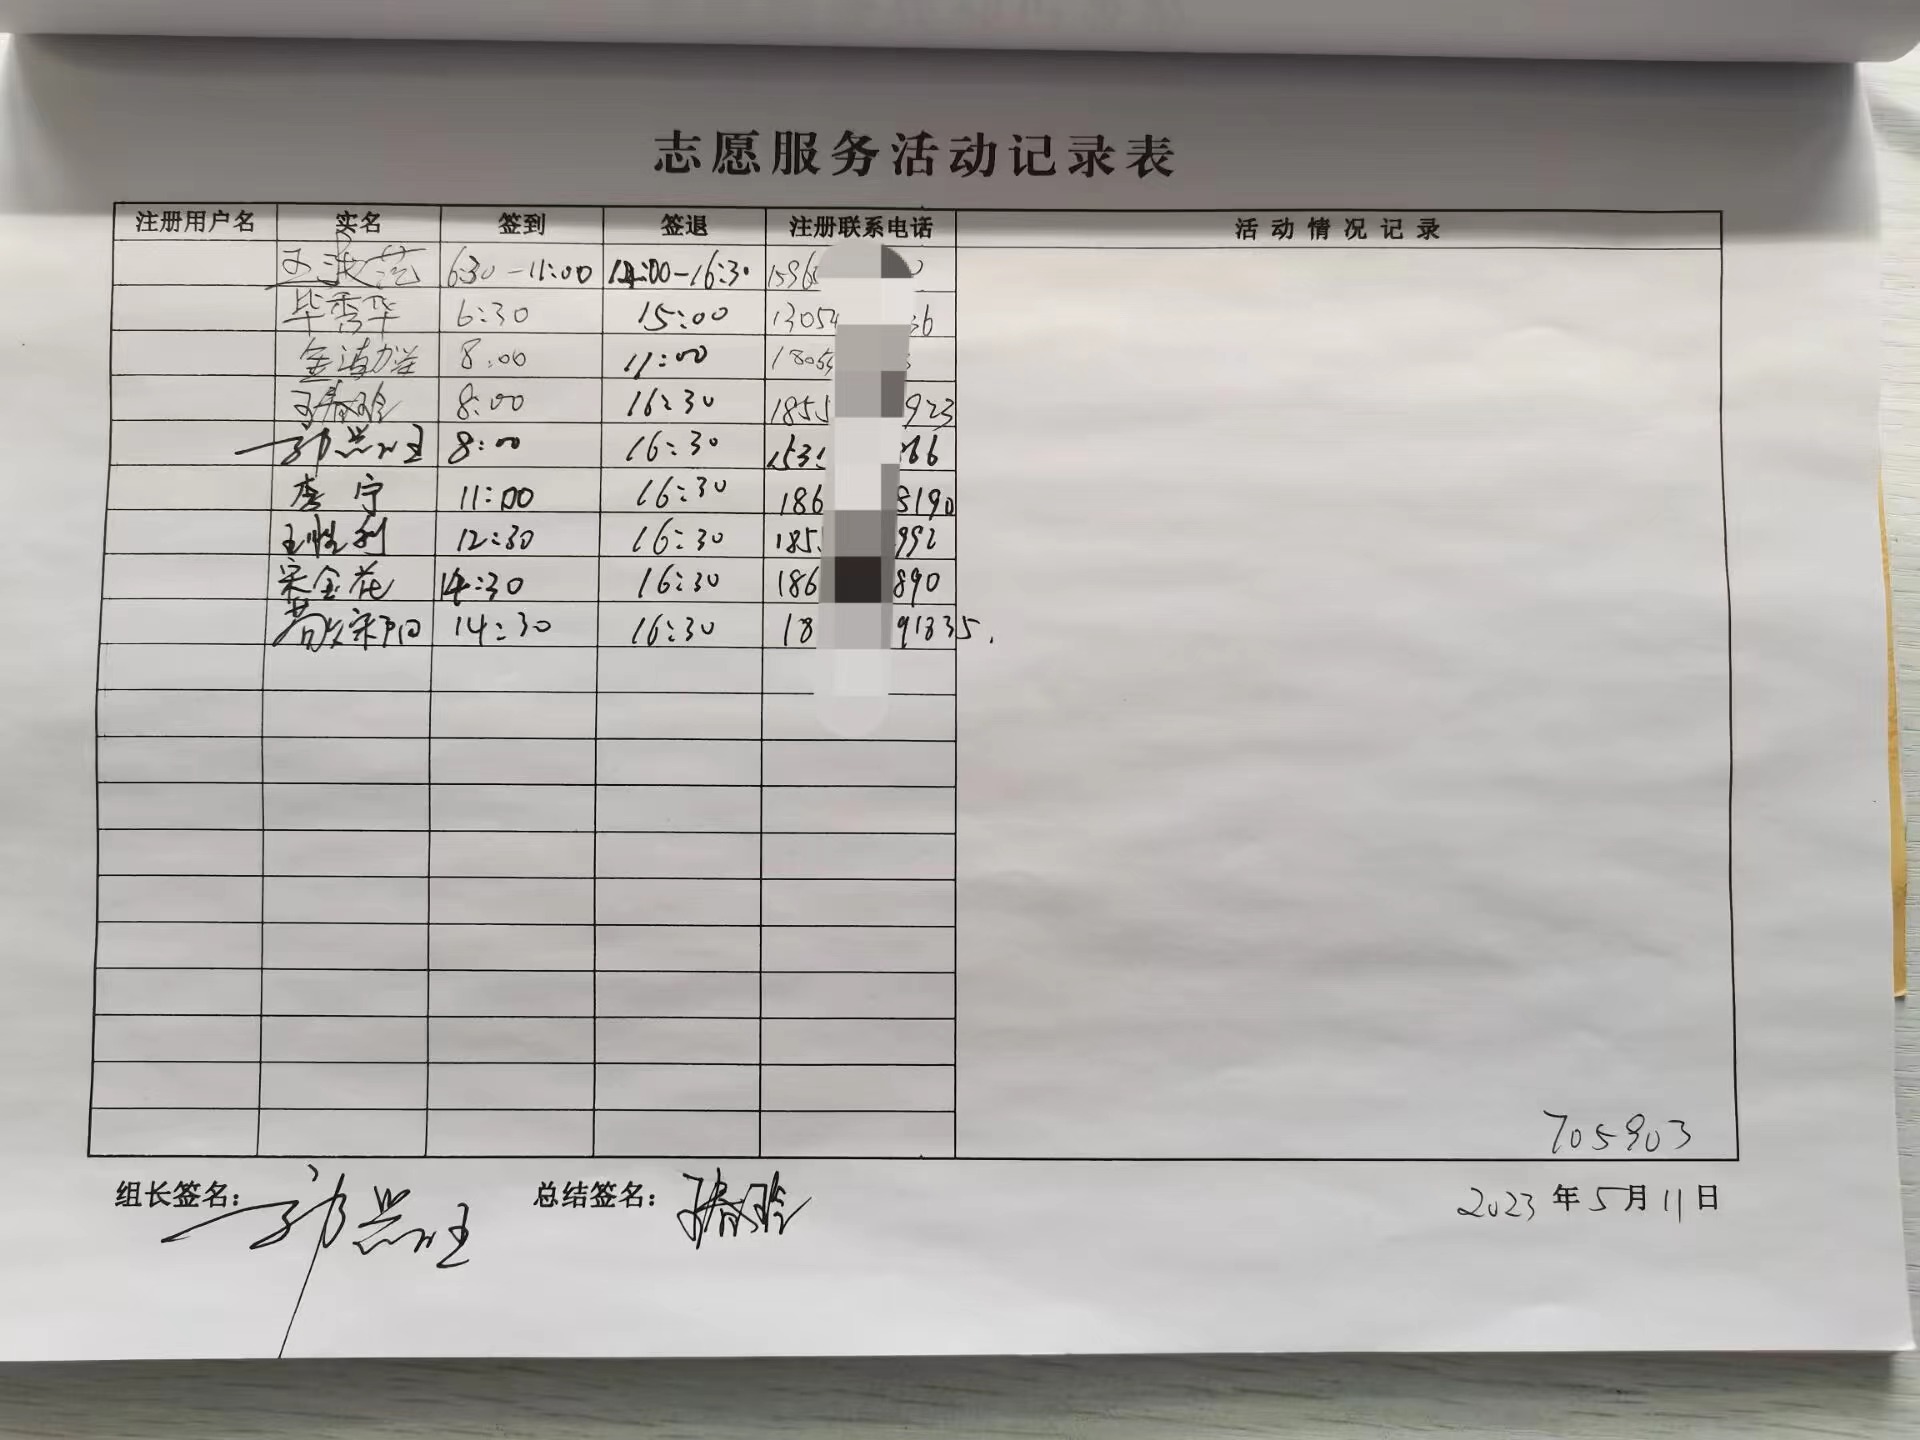 志愿服务活动记录表
注册用户名 实名 签到 签退 注册联系电话 活动情况记录
6:30-11:00 14:00-16:30 1596
毕秀华 6:30 15:00 13054 36
8:00 11:00 1805
王春玲 8:00 16:30 1855 923
8:00 16:30 153 66
李宁 11:00 16:30 186 8190
王胜利 12:30 16:30 185 992
宋金花 14:30 16:30 186 890
14:30 16:30 18 91835.
705903
组长签名: 总结签名: 王春玲 2023年5月11日